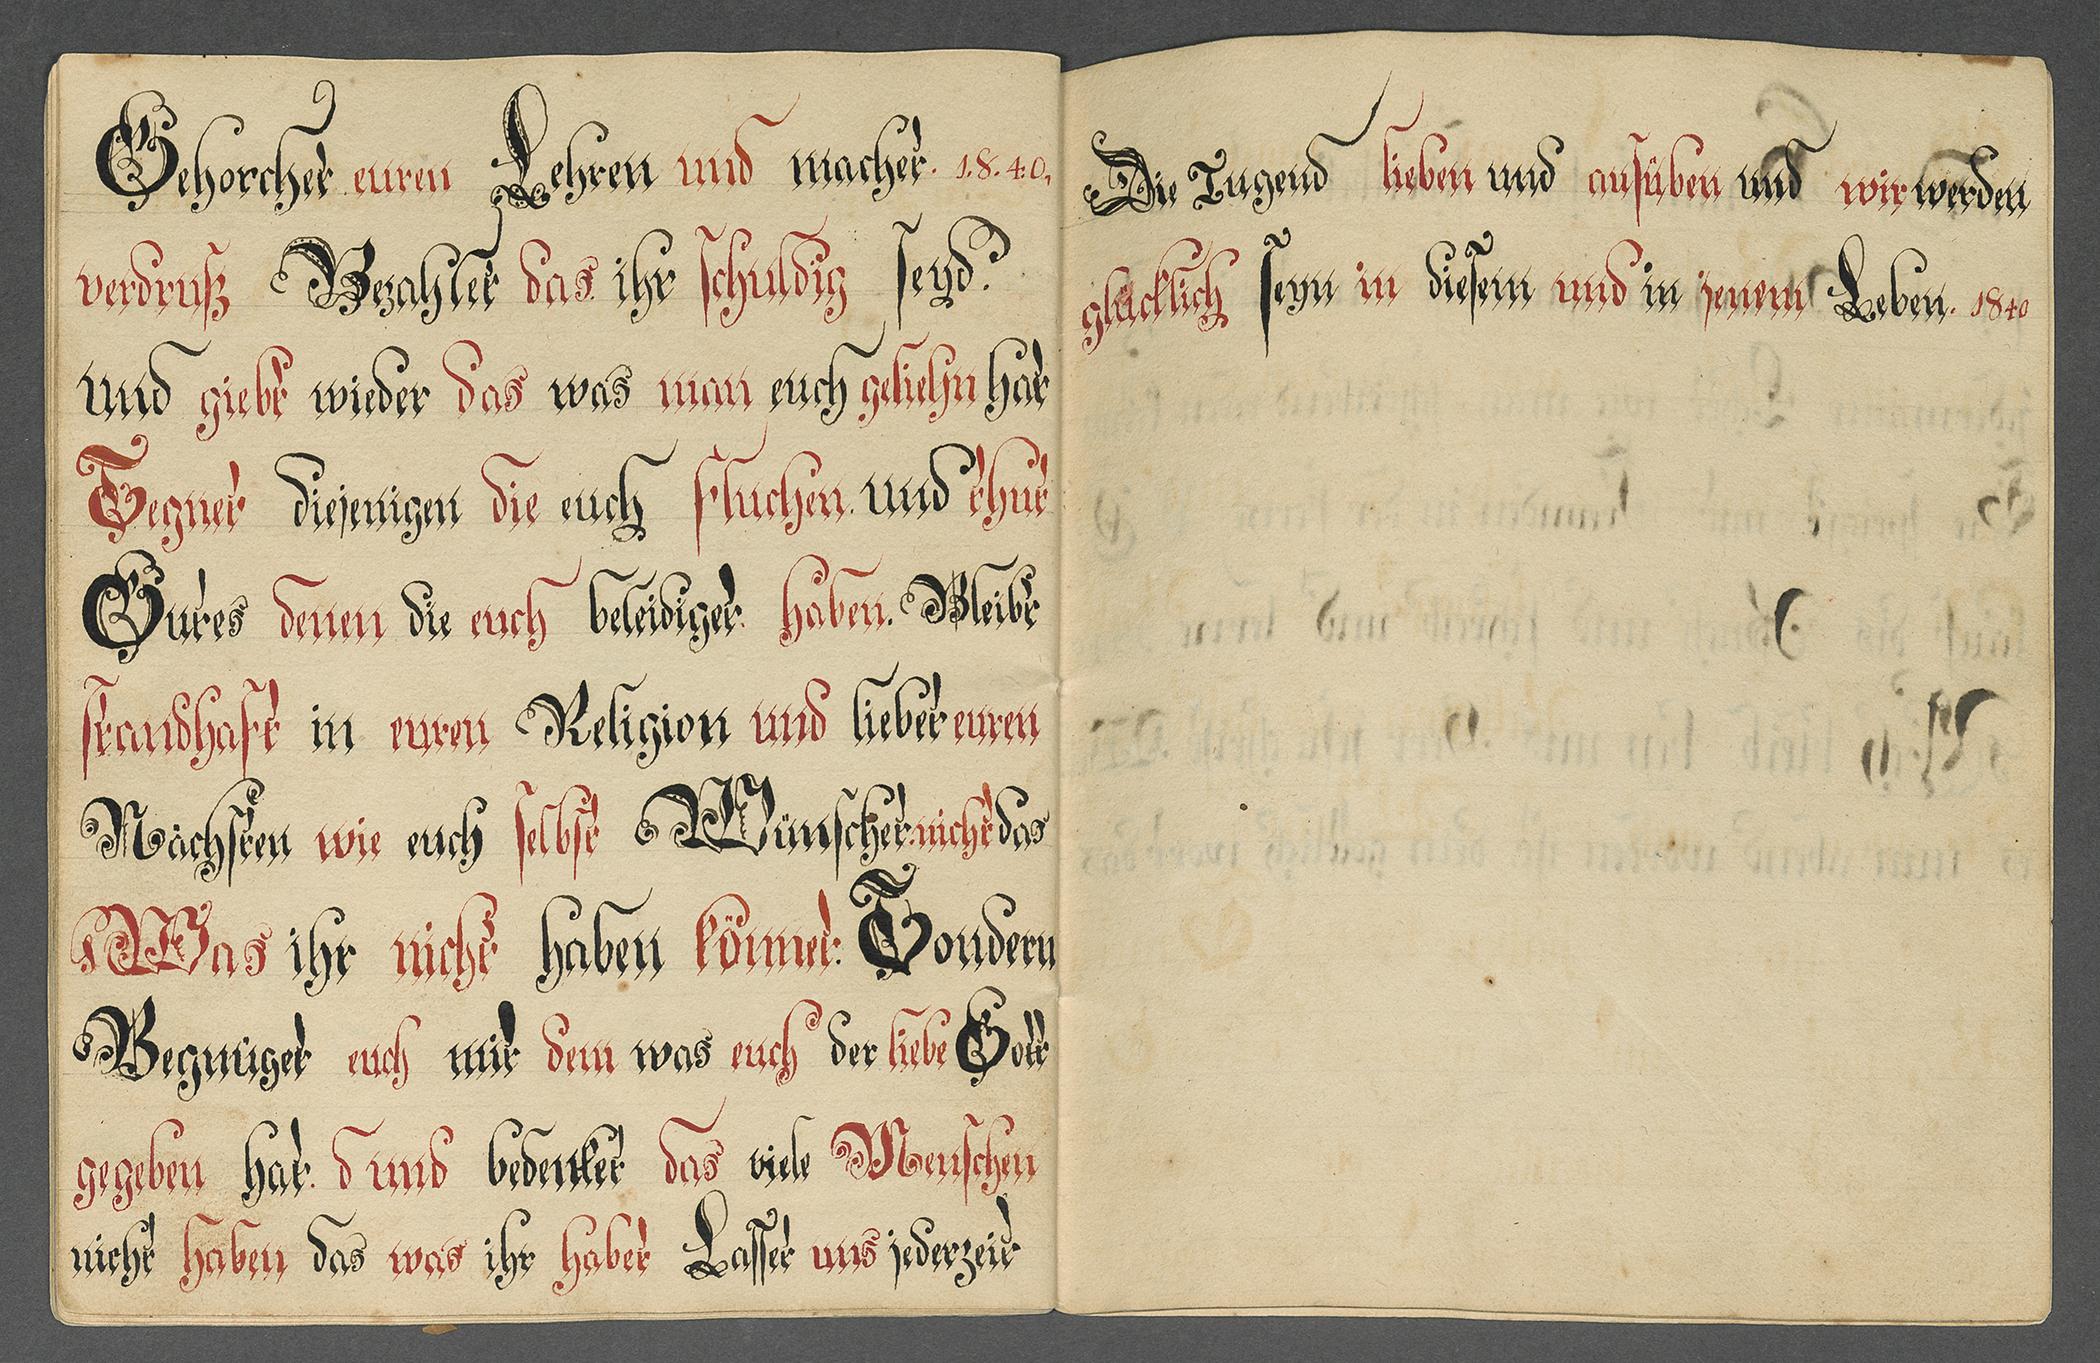 Gehorchet euren Lehren und machet. 1.8.4.0.
verdruß Bezahlet das ihr schuldig seyd.
und giebt wieder das was man euch geliehn hat
Segnet diejenigen die euch fluchen. und thut
Gutes denen die euch beleidiget. haben. Bleibt
standhaft in euren Religion und liebet euren
Nächsten wie euch selbst Wünschet. nicht das
Was ihr nicht haben könnet: Sondern
Begnüget euch mit dem was euch der liebe Gott
gegeben hat: d und bedenket das viele Menschen
nicht haben das was ihr habet Lasset uns jederzeit
Die Tugend lieben und ausüben und wir werden
glücklich seyn in diesem und in jenem Leben. 1840